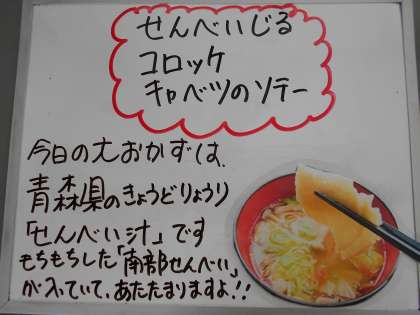 せんべいじる
コロッケ
キャベツのソテー
今日の大おかずは、
青森県のきょうどりょうり
「せんべい汁」です
もちもちした「南部せんべい」
が入っていて、あたたまりますよ!!